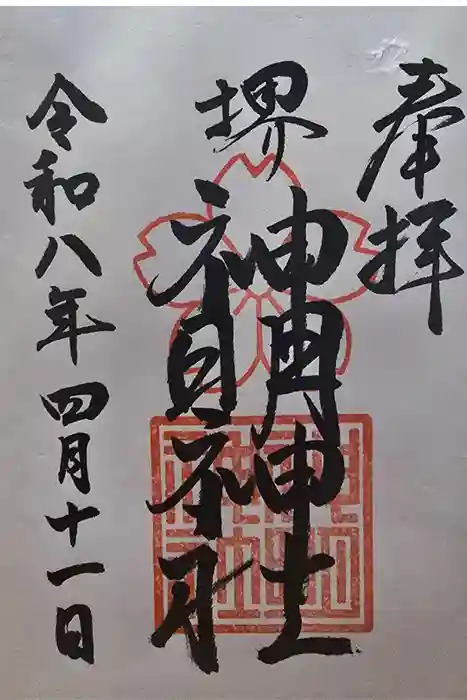 奉拝
堺
神明神社
令和八年四月十一日